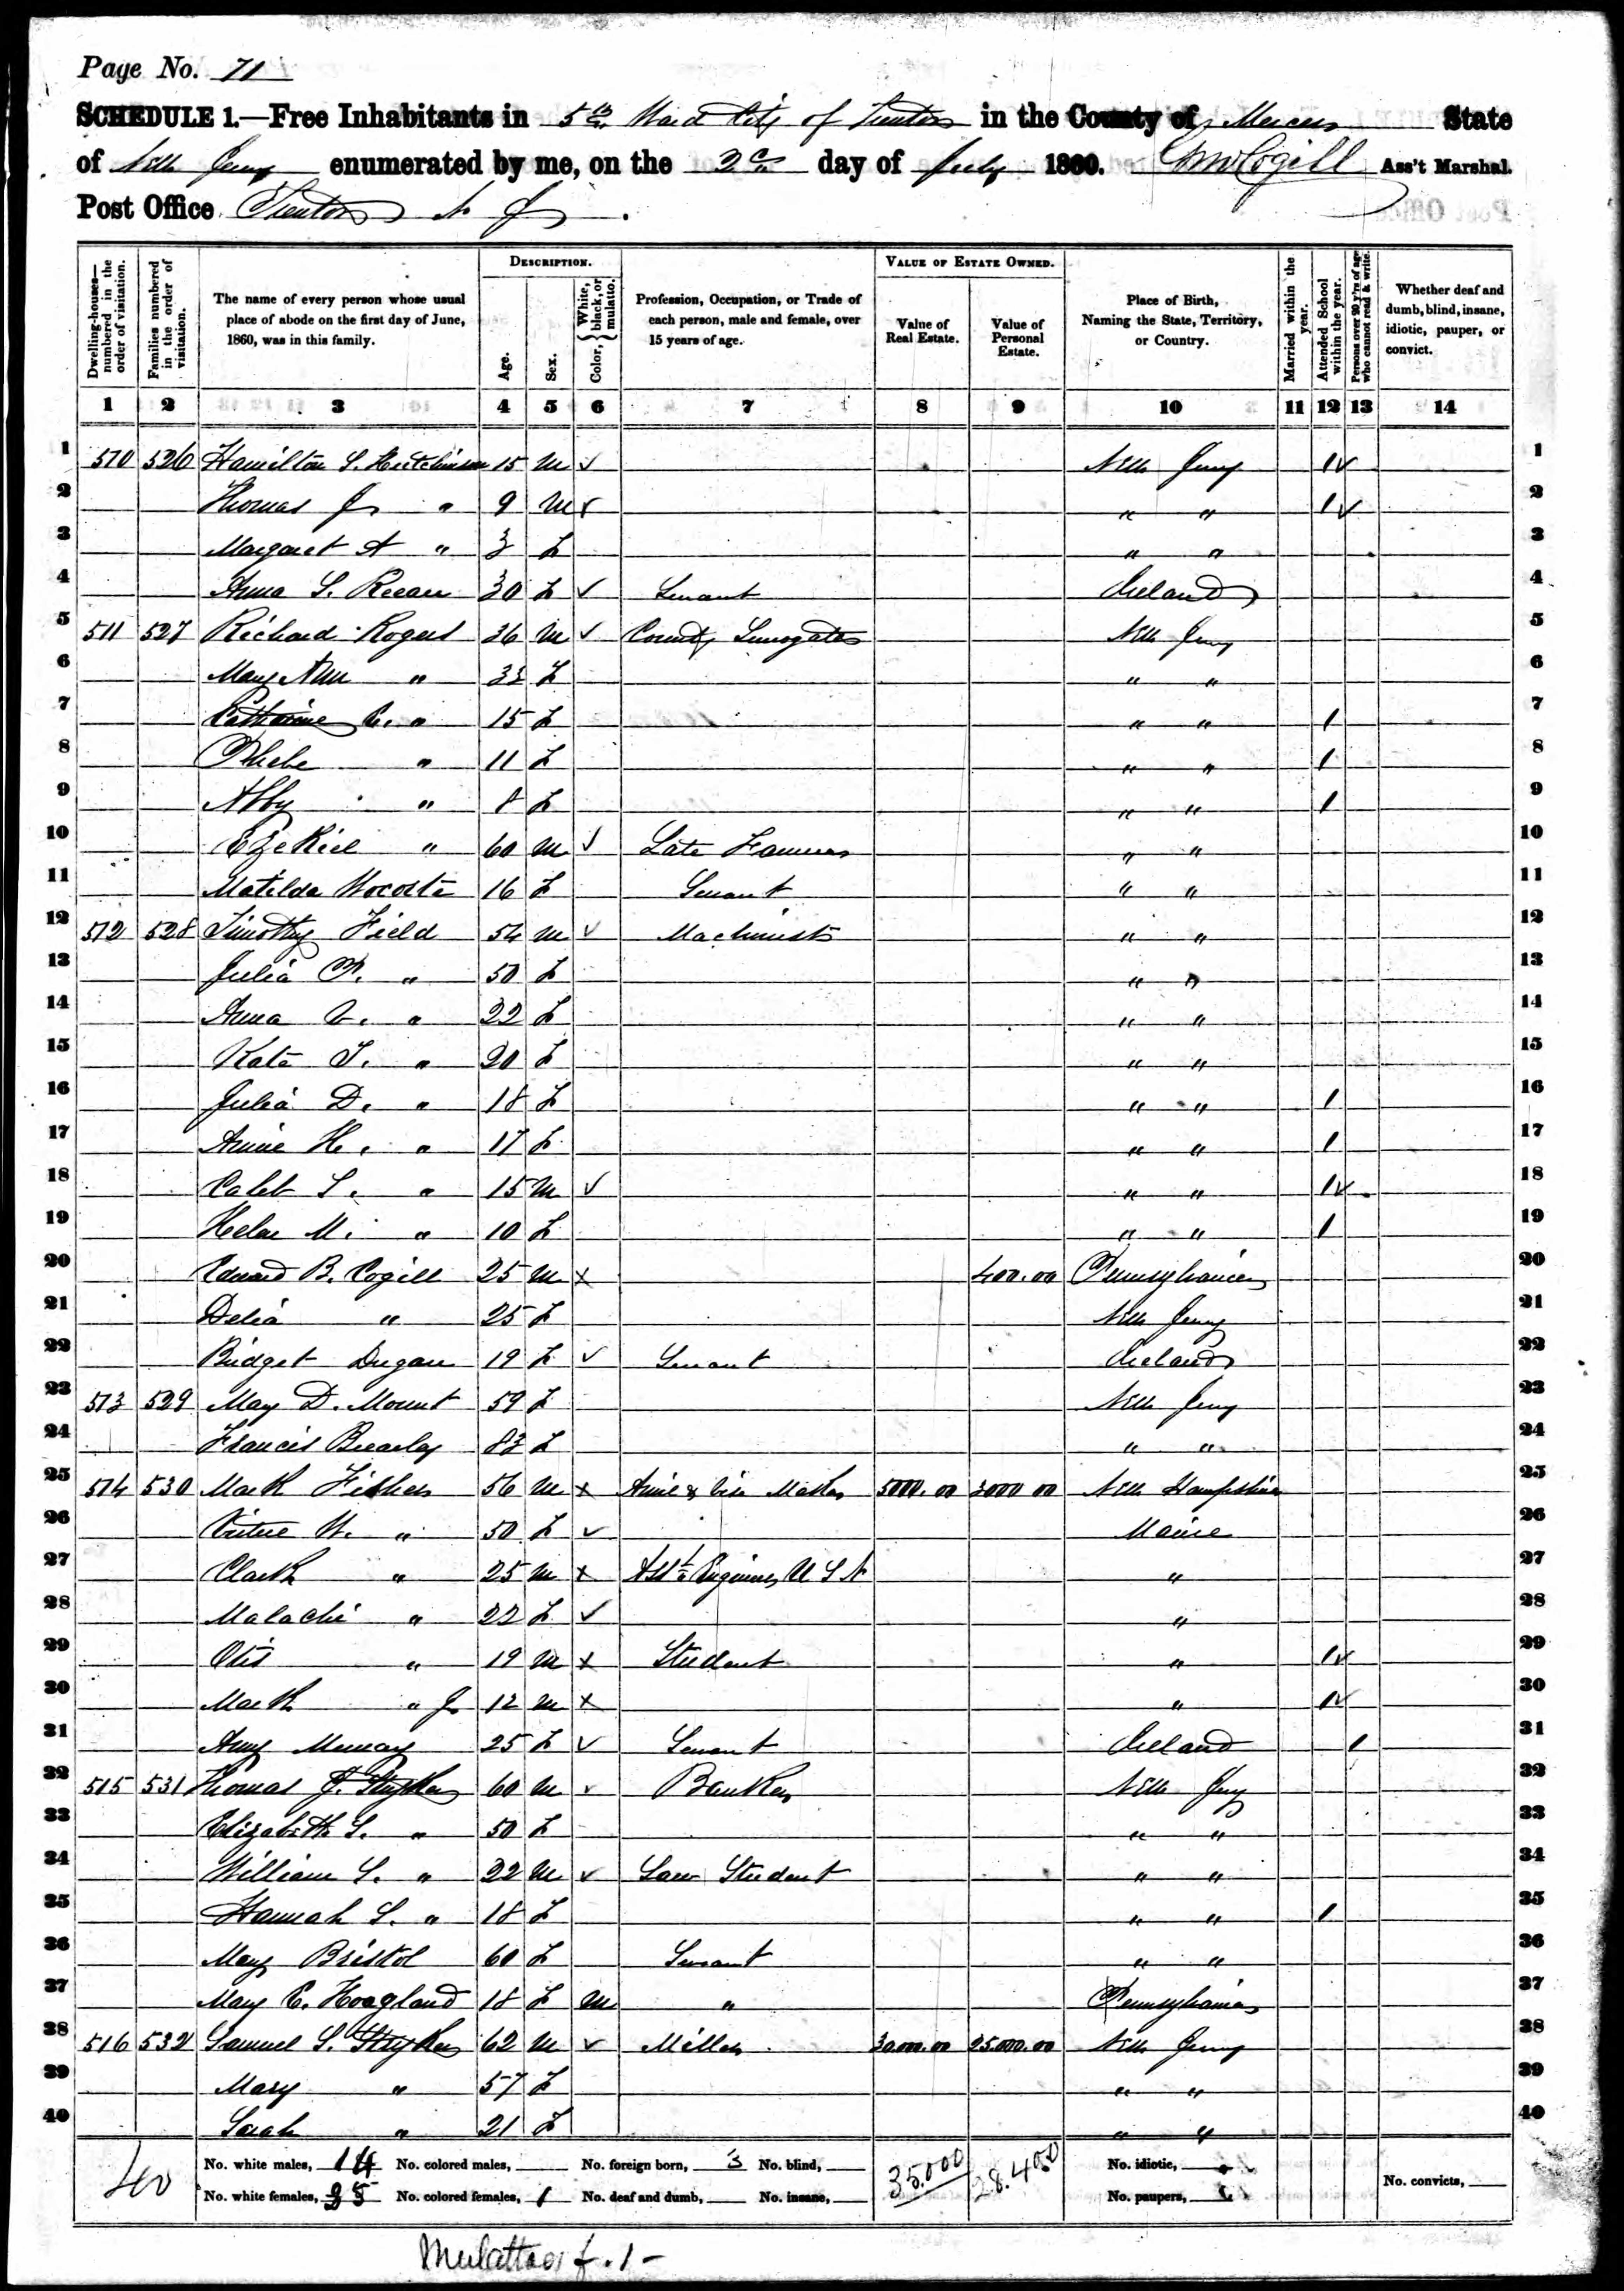 Page No. 71
SCHEDULE 1.—Free Inhabitants in 5th Ward City of Trenton in the County of Mercer State
of New Jersey enumerated by me, on the day of July 1860. Cogill Ass't Marshal.
Post Office Trenton N J
Dwelling-houses—numbered in the order of visitation.
Families numbered in the order of visitation.
The name of every person whose usual place of abode on the first day of June, 1860, was in this family.
DESCRIPTION.
Age.
Sex.
Color, {White, black, or mulatto.
Profession, Occupation, or Trade of each person, male and female, over 15 years of age.
VALUE OF ESTATE OWNED.
Value of Real Estate.
Value of Personal Estate.
Place of Birth, Naming the State, Territory, or Country.
Married within the year.
Attended School within the year.
Persons over 20 y'rs of age who cannot read & write.
Whether deaf and dumb, blind, insane, idiotic, pauper, or convict.
1 2 3 4 5 6 7 8 9 10 11 12 13 14
1 510 526 Hamilton S. Hutchinson 15 M ✓ New Jersey 1✓ 1
2 Thomas J " 9 M ✓ " " 1✓ 2
3 Margaret A " 3 f " " 3
4 Anna S. 30 f ✓ Servant Ireland 4
5 511 527 Richard Rogers 36 M ✓ County Surrogate New Jersey 5
6 Mary Ann " f " " 6
7 Catharine C. " 15 f " " 1 7
8 Phebe " 11 f " " 1 8
9 Abby " 8 f " " 1 9
10 Ezekiel " 60 M ✓ Late Farmer " " 10
11 Matilda 16 f Servant " " 11
12 512 528 Timothy Field 54 M ✓ Machinist " " 12
13 Julia P. " 50 f " " 13
14 Anna " 22 f " " 14
15 Kate T. " 20 f " " 15
16 Julia D. " 18 f " " 1 16
17 Annie H. " 17 f " " 1 17
18 Caleb S. " 15 M ✓ " " 1✓ 18
19 Helen M. " 10 f " " 1 19
20 Edward B. Cogill 25 M x 400.00 Pennsylvania 20
21 Delia " 25 f New Jersey 21
22 Bridget Dugan 19 f ✓ Servant Ireland 22
23 513 529 Mary D. Mount 59 f New Jersey 23
24 Francis Brearley 83 f " " 24
25 514 530 Mark Fisher 56 M x Anvil & Vise Maker 5000.00 3000 00 New Hampshire 25
26 Virtue W. " 50 f ✓ Maine 26
27 Clark " 25 M x Asst Engineer U S N " 27
28 Malachi " 22 f ✓ " 28
29 Otis " 19 M x Student " 1✓ 29
30 Mark " Jr 12 M x " 1✓ 30
31 Murray 25 f ✓ Servant Ireland 1 31
32 515 531 Thomas J. Stryker 60 M ✓ Banker New Jersey 32
33 Elizabeth S. " 50 f " " 33
34 William S. " 22 M ✓ Law Student " " 34
35 Hannah S. " 18 f " " 1 35
36 Mary Bristol 60 f Servant " " 36
37 Mary C. Hoagland 18 f M " Pennsylvania 37
38 516 532 Samuel S. Stryker 62 M ✓ Miller 30.000.00 25.000.00 New Jersey 38
39 Mary " 57 f " " 39
40 Sarah " 21 f " " 40
40 No. white males, 14 No. colored males, No. foreign born, 3 No. blind, 35.000 28.400 No. idiotic,
No. white females, 25 No. colored females, 1 No. deaf and dumb, No. insane, No. paupers, No. convicts,
Mulattoes f. 1 -